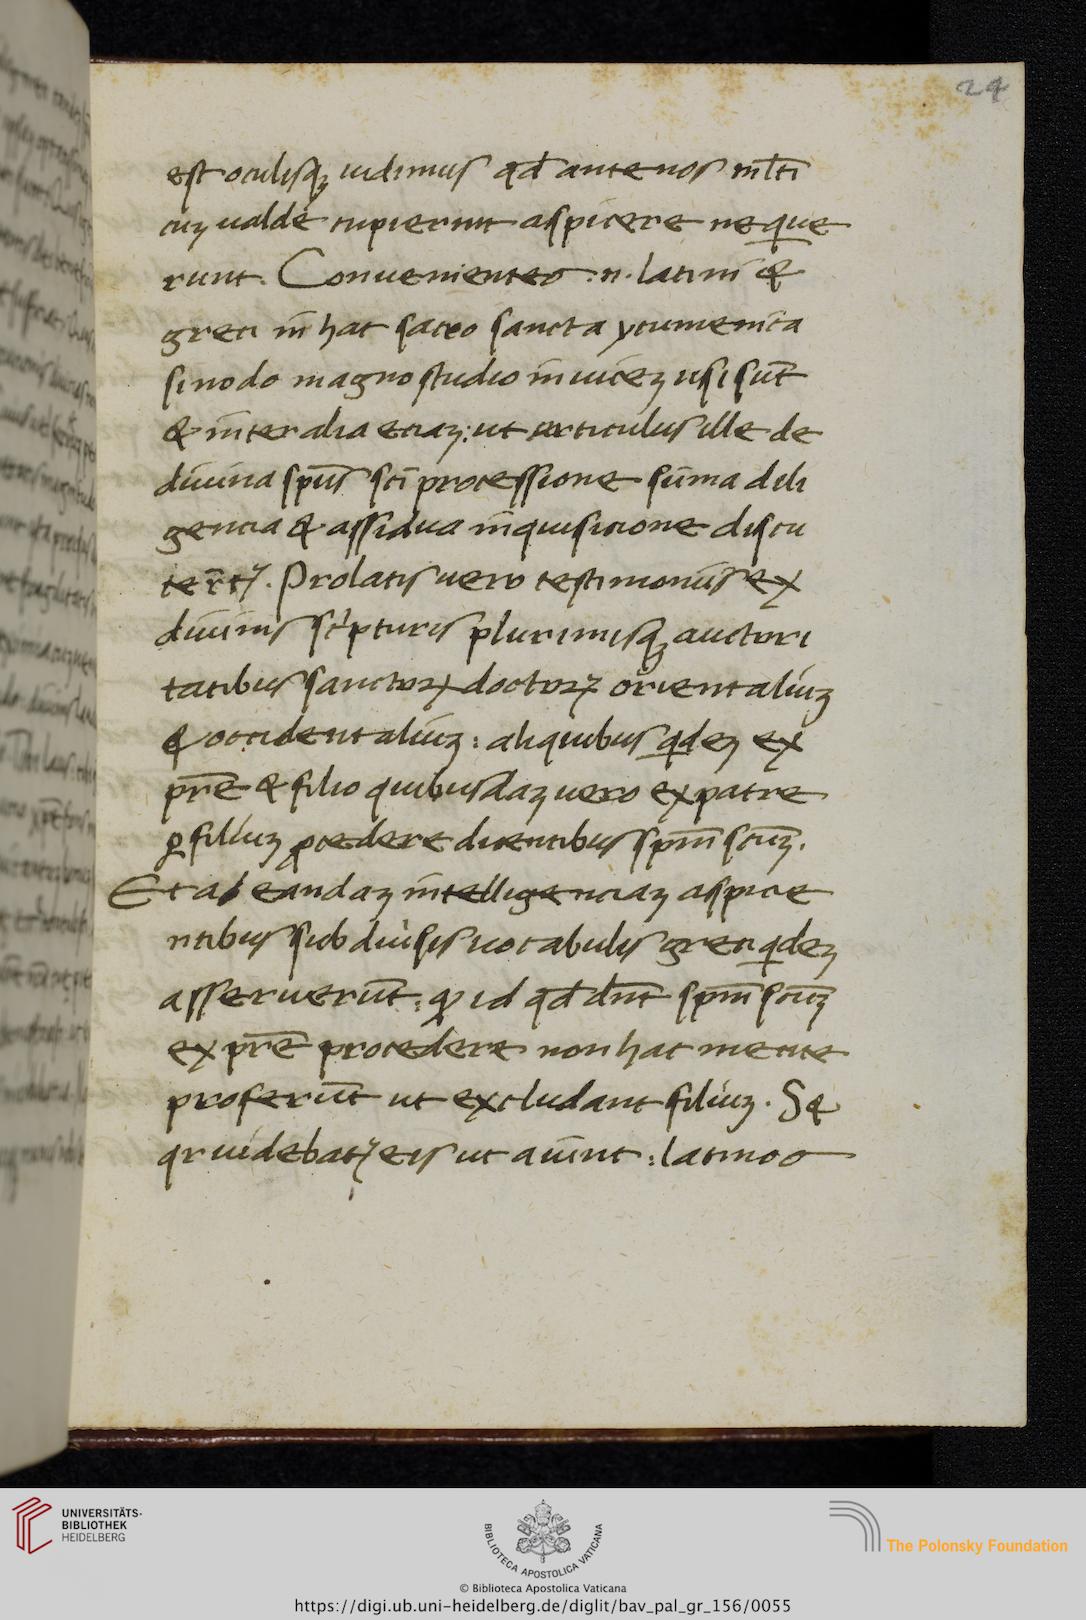 24
est oculisqꝫ uidimus qd̄ ante nos ml̄ti
cuꝫ ualde cupierint aspicere neque
runt. Conuenientes .n. latini &
greci in hac sacro sancta ycumenica
sinodo magno studio inuiceꝫ usi sūt
& inter alia eciaꝫ: ut articulus ille de
diuina spūs sc̄i processione sūma dili
gencia & assidua inquisicione discu
teret᷑. Prolatis uero testimoniis ex
diuinis scͥpturis plurimisqꝫ auctori
tatibus sanctoꝝ doctoꝝ orientaliuꝫ
& occidentaliuꝫ: aliquibus qͥdeꝫ ex
pr̄e & filio quibusdaꝫ uero ex patre
ꝑ filiuꝫ ꝓcedere dicentibus spm̄ scūꝫ.
Et ad eandaꝫ intelligenciaꝫ aspicie
ntibus sub diu̓sis uocabulis greci qͥdeꝫ
asseruerūt: ꝙ id qd̄ dn̄t spm̄ scūꝫ
ex pr̄e procedere non hac mente
proferūt ut excludant filiuꝫ. S&
qr uidebat᷑ eis ut aiunt: latinos
UNIVERSITÄTS-
BIBLIOTHEK
HEIDELBERG
BIBLIOTECA APOSTOLICA VATICANA
The Polonsky Foundation
© Biblioteca Apostolica Vaticana
https://digi.ub.uni-heidelberg.de/diglit/bav_pal_gr_156/0055